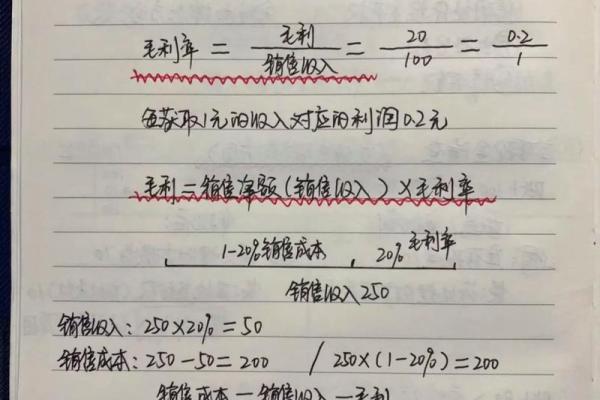 毛利率 = 毛利/销售收入 = 20/100 = 0.2/1
每获取1元的收入对应的利润0.2元
毛利 = 销售净额(销售收入) × 毛利率
1-20%销售成本 , 20%毛利率
销售收入250
销售收入: 250×20% = 50
销售成本: 250-50 = 200 / 250×(1-20%) = 200
销售成本 = 销售收入 - 毛利